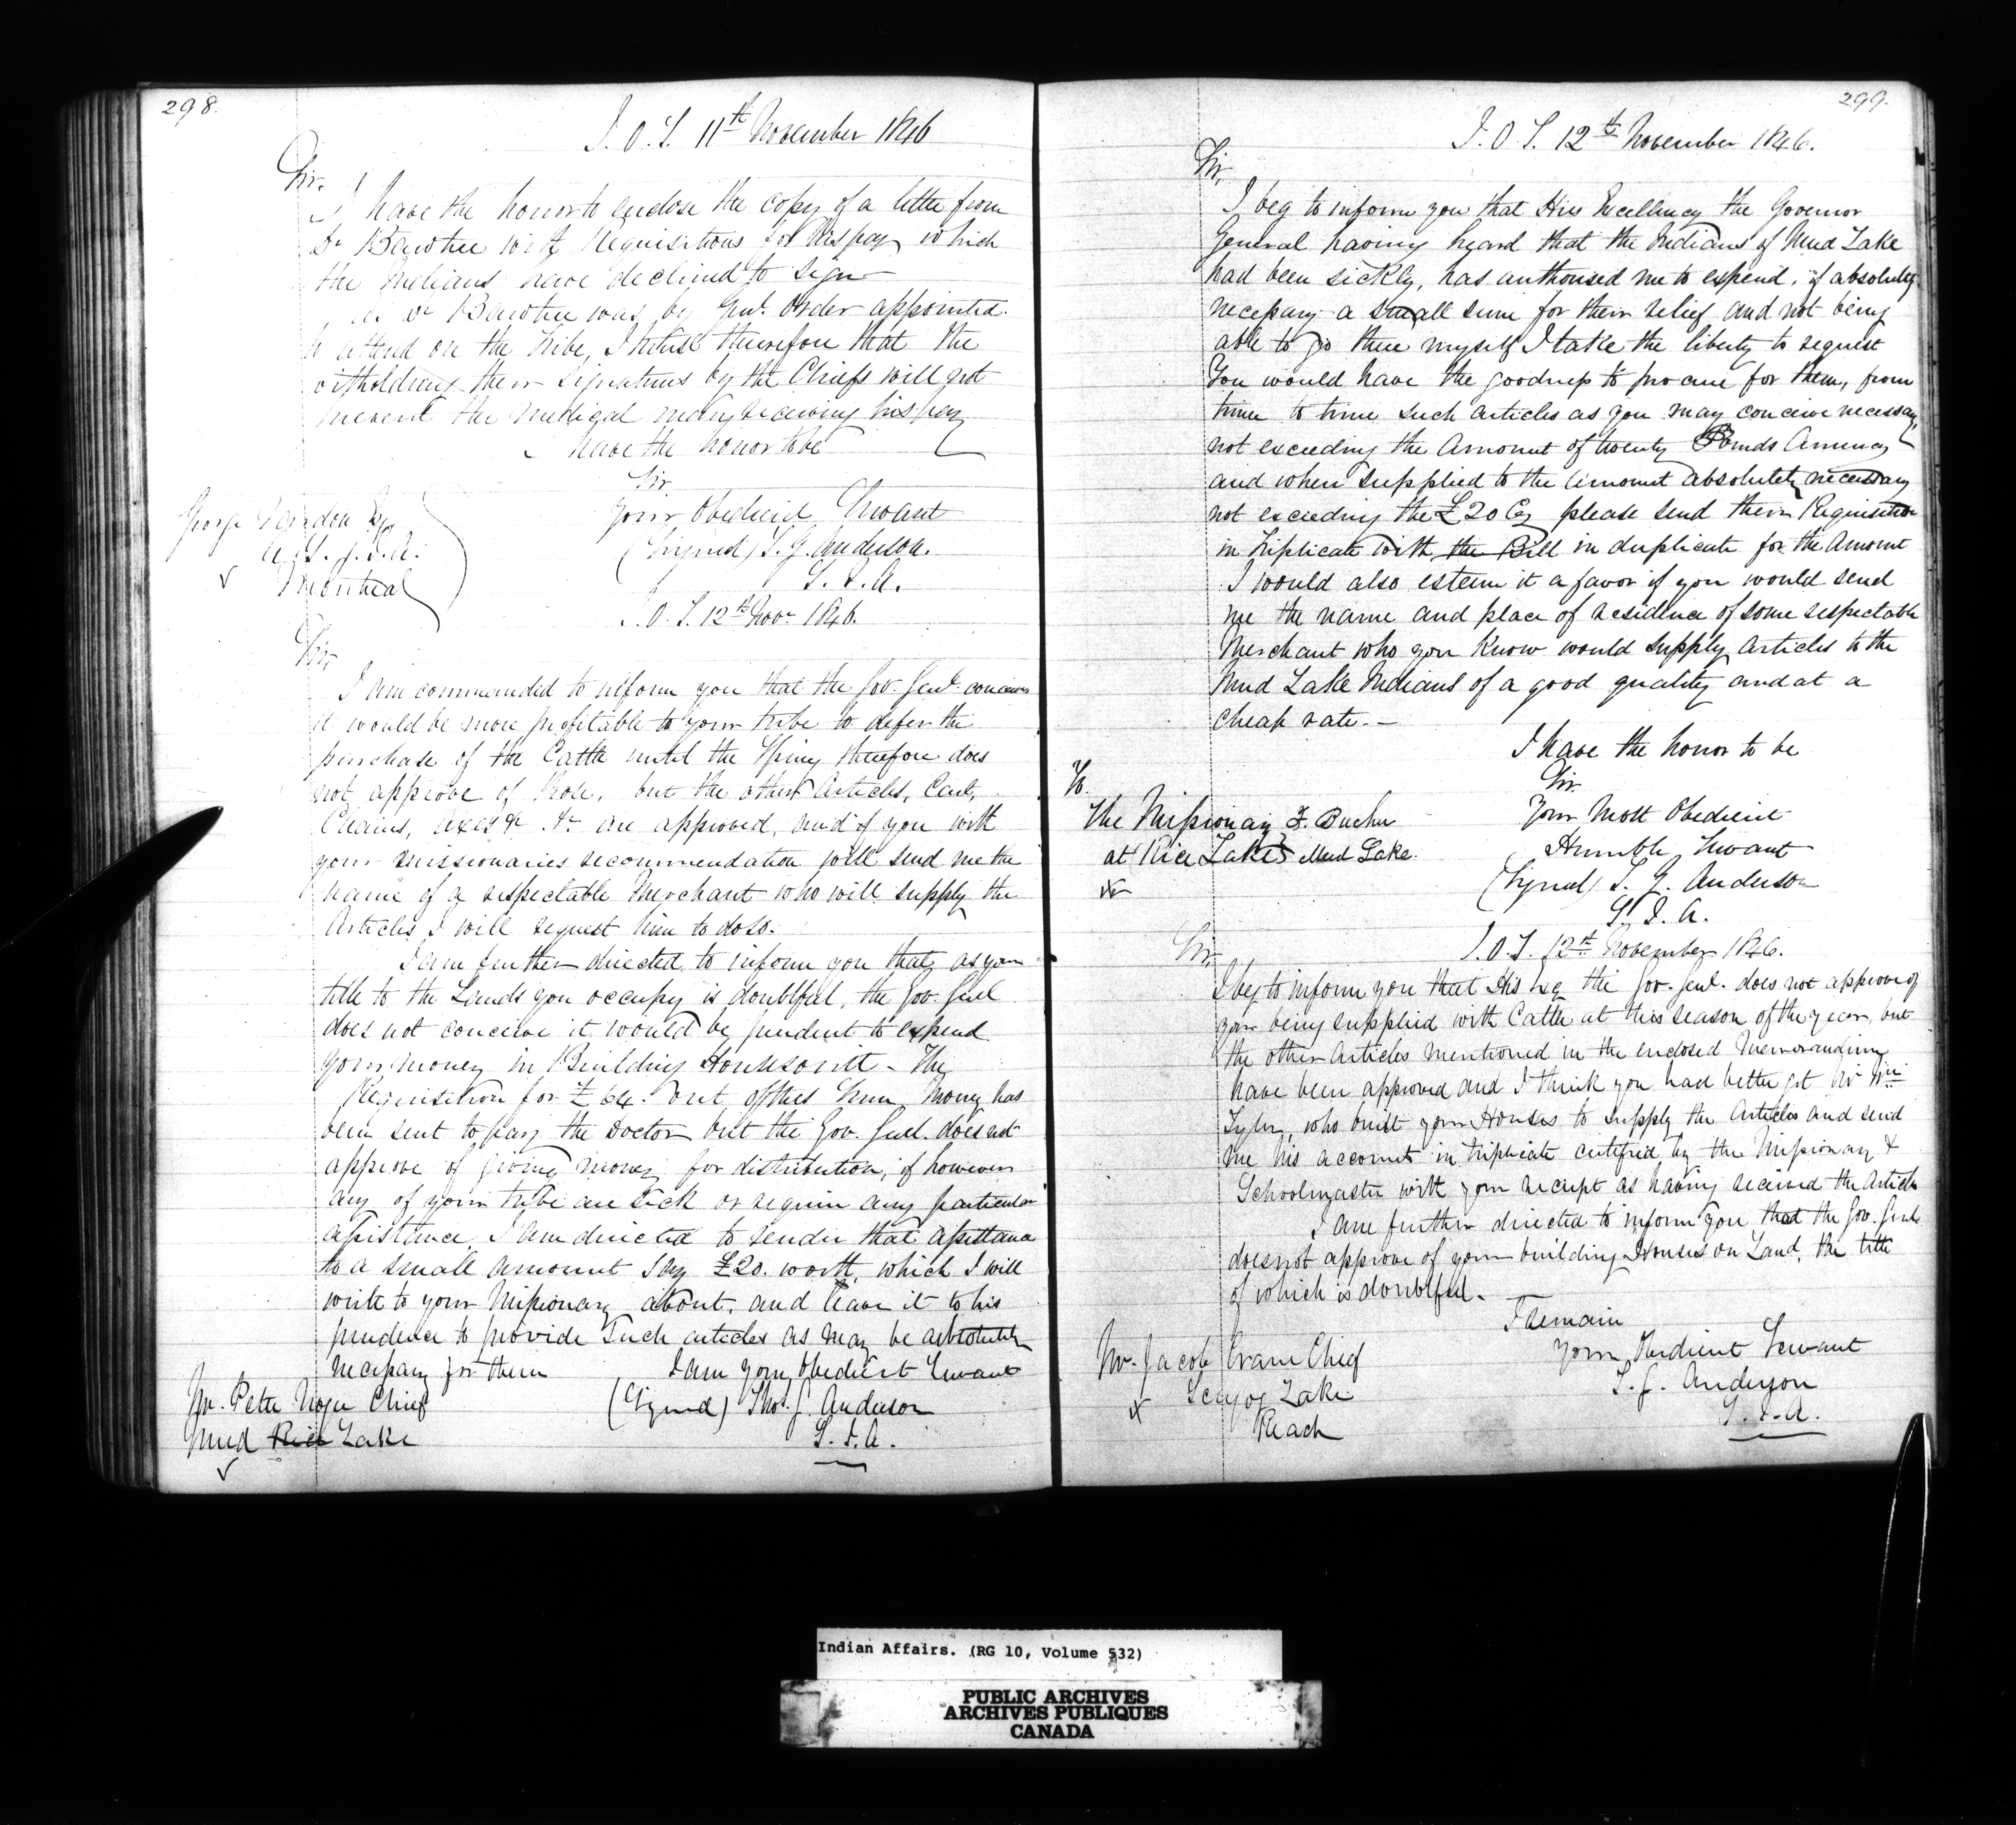 298.
I. O. T. 11th November 1846
Sir.
I have the honor to enclose the copy of a letter from
Dr Bawtree with Requisitions for his pay which
the Indians have declined to sign
as Dr Bawtree was by Genl. Order appointed
to attend on the Tribe, I trust therefore that the
witholding their signatures by the Chiefs will not
prevent the medical man receiving his pay
I have the honor to be
Sir
Your Obedient Servant
(Signed) T. G. Anderson.
S. I. A.
George Vardon Esq
A. S. I. A.
Montreal
I. O. T. 12th Novr 1846.
Sir
I am commanded to inform you that the Gov. Genl. conceives
it would be more profitable to your tribe to defer the
purchase of the Cattle until the Spring therefore does
not approve of those, but the other Articles,
Chains, axes &c &c are approved, and if you with
your missionaries recommendation will send me the
name of a respectable Merchant who will supply the
Articles I will request him to do so.
I am further directed to inform you that, as your
title to the Lands you occupy is doubtful, the Gov. Genl
does not conceive it would be prudent to expend
your money in Building Houses on it - The
Requisition for £64. out of this Sum, Money has
been sent to pay the Doctor but the Gov. Genl. does not
approve of giving money for distribution, if however
any of your tribe are sick or require any particular
assistance I am directed to render that assistance
to a small amount say £20. worth, which I will
write to your Missionary about, and leave it to his
prudence to provide Such articles as may be absolutely
necessary for them I am Your Obedient Servant
Mr. Peter Noge Chief (Signed) Thos. G. Anderson
Mud Rice Lake S. I. A.
299.
I. O. T. 12th November 1846.
Sir,
I beg to inform you that His Excellency the Governor
General having heard that the Indians of Mud Lake
had been sickly, has authorised me to expend, if absolutely
necessary a small sum for their relief and not being
able to go there myself I take the liberty to request
You would have the goodness to procure for them, from
time to time such articles as you may conceive necessary
not exceeding the Amount of twenty Pounds Currency
and when supplied to the amount absolutely necessary
not exceeding the £20 Cy please send their Requisition
in triplicate with the Bill in duplicate for the Amount
I would also esteem it a favor if you would send
me the name and place of residence of some respectable
Merchant who you Know would supply Articles to the
Mud Lake Indians of a good quality and at a
cheap rate. -
I have the honor to be
Sir
Your Most Obedient
Humble Servant
(Signed) T. G. Anderson
S. I. A.
To
The Missionary
at Rice Lake Mud Lake.
I. O. T. 12th November 1846.
Sir,
I beg to inform you that His Exy the Gov. Genl. does not approve of
your being supplied with Cattle at this season of the year, but
the other Articles mentioned in the enclosed Memorandum
have been approved and I think you had better get Mr Wm
Tyler, who built your Houses to supply the Articles and send
me his account in triplicate certified by the Missionary &
Schoolmaster with your receipt as having received the Articles
I am further directed to inform you that the Gov. Genl.
does not approve of your building Houses on Land, the title
of which is doubtful.
I remain
Your Obedient Servant
T. G. Anderson
S. I. A.
Mr. Jacob Crane Chief
Scugog Lake
Reach
Indian Affairs. (RG 10, Volume 532)
PUBLIC ARCHIVES
ARCHIVES PUBLIQUES
CANADA